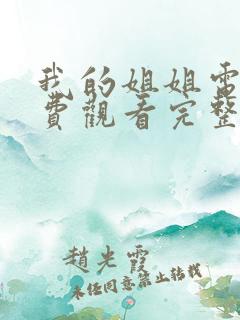 我的姐姐電
費觀看完整
趙光霞
未经同意禁止转载